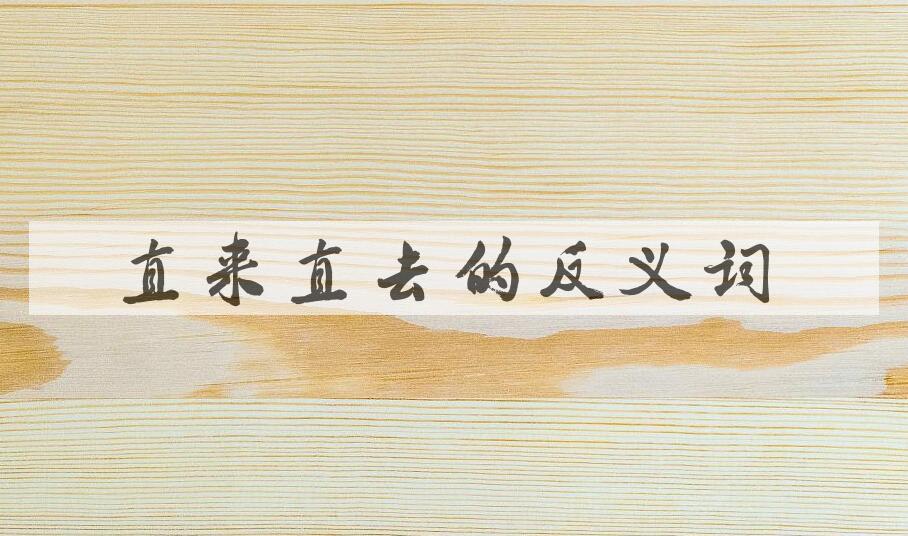 直来直去的反义词